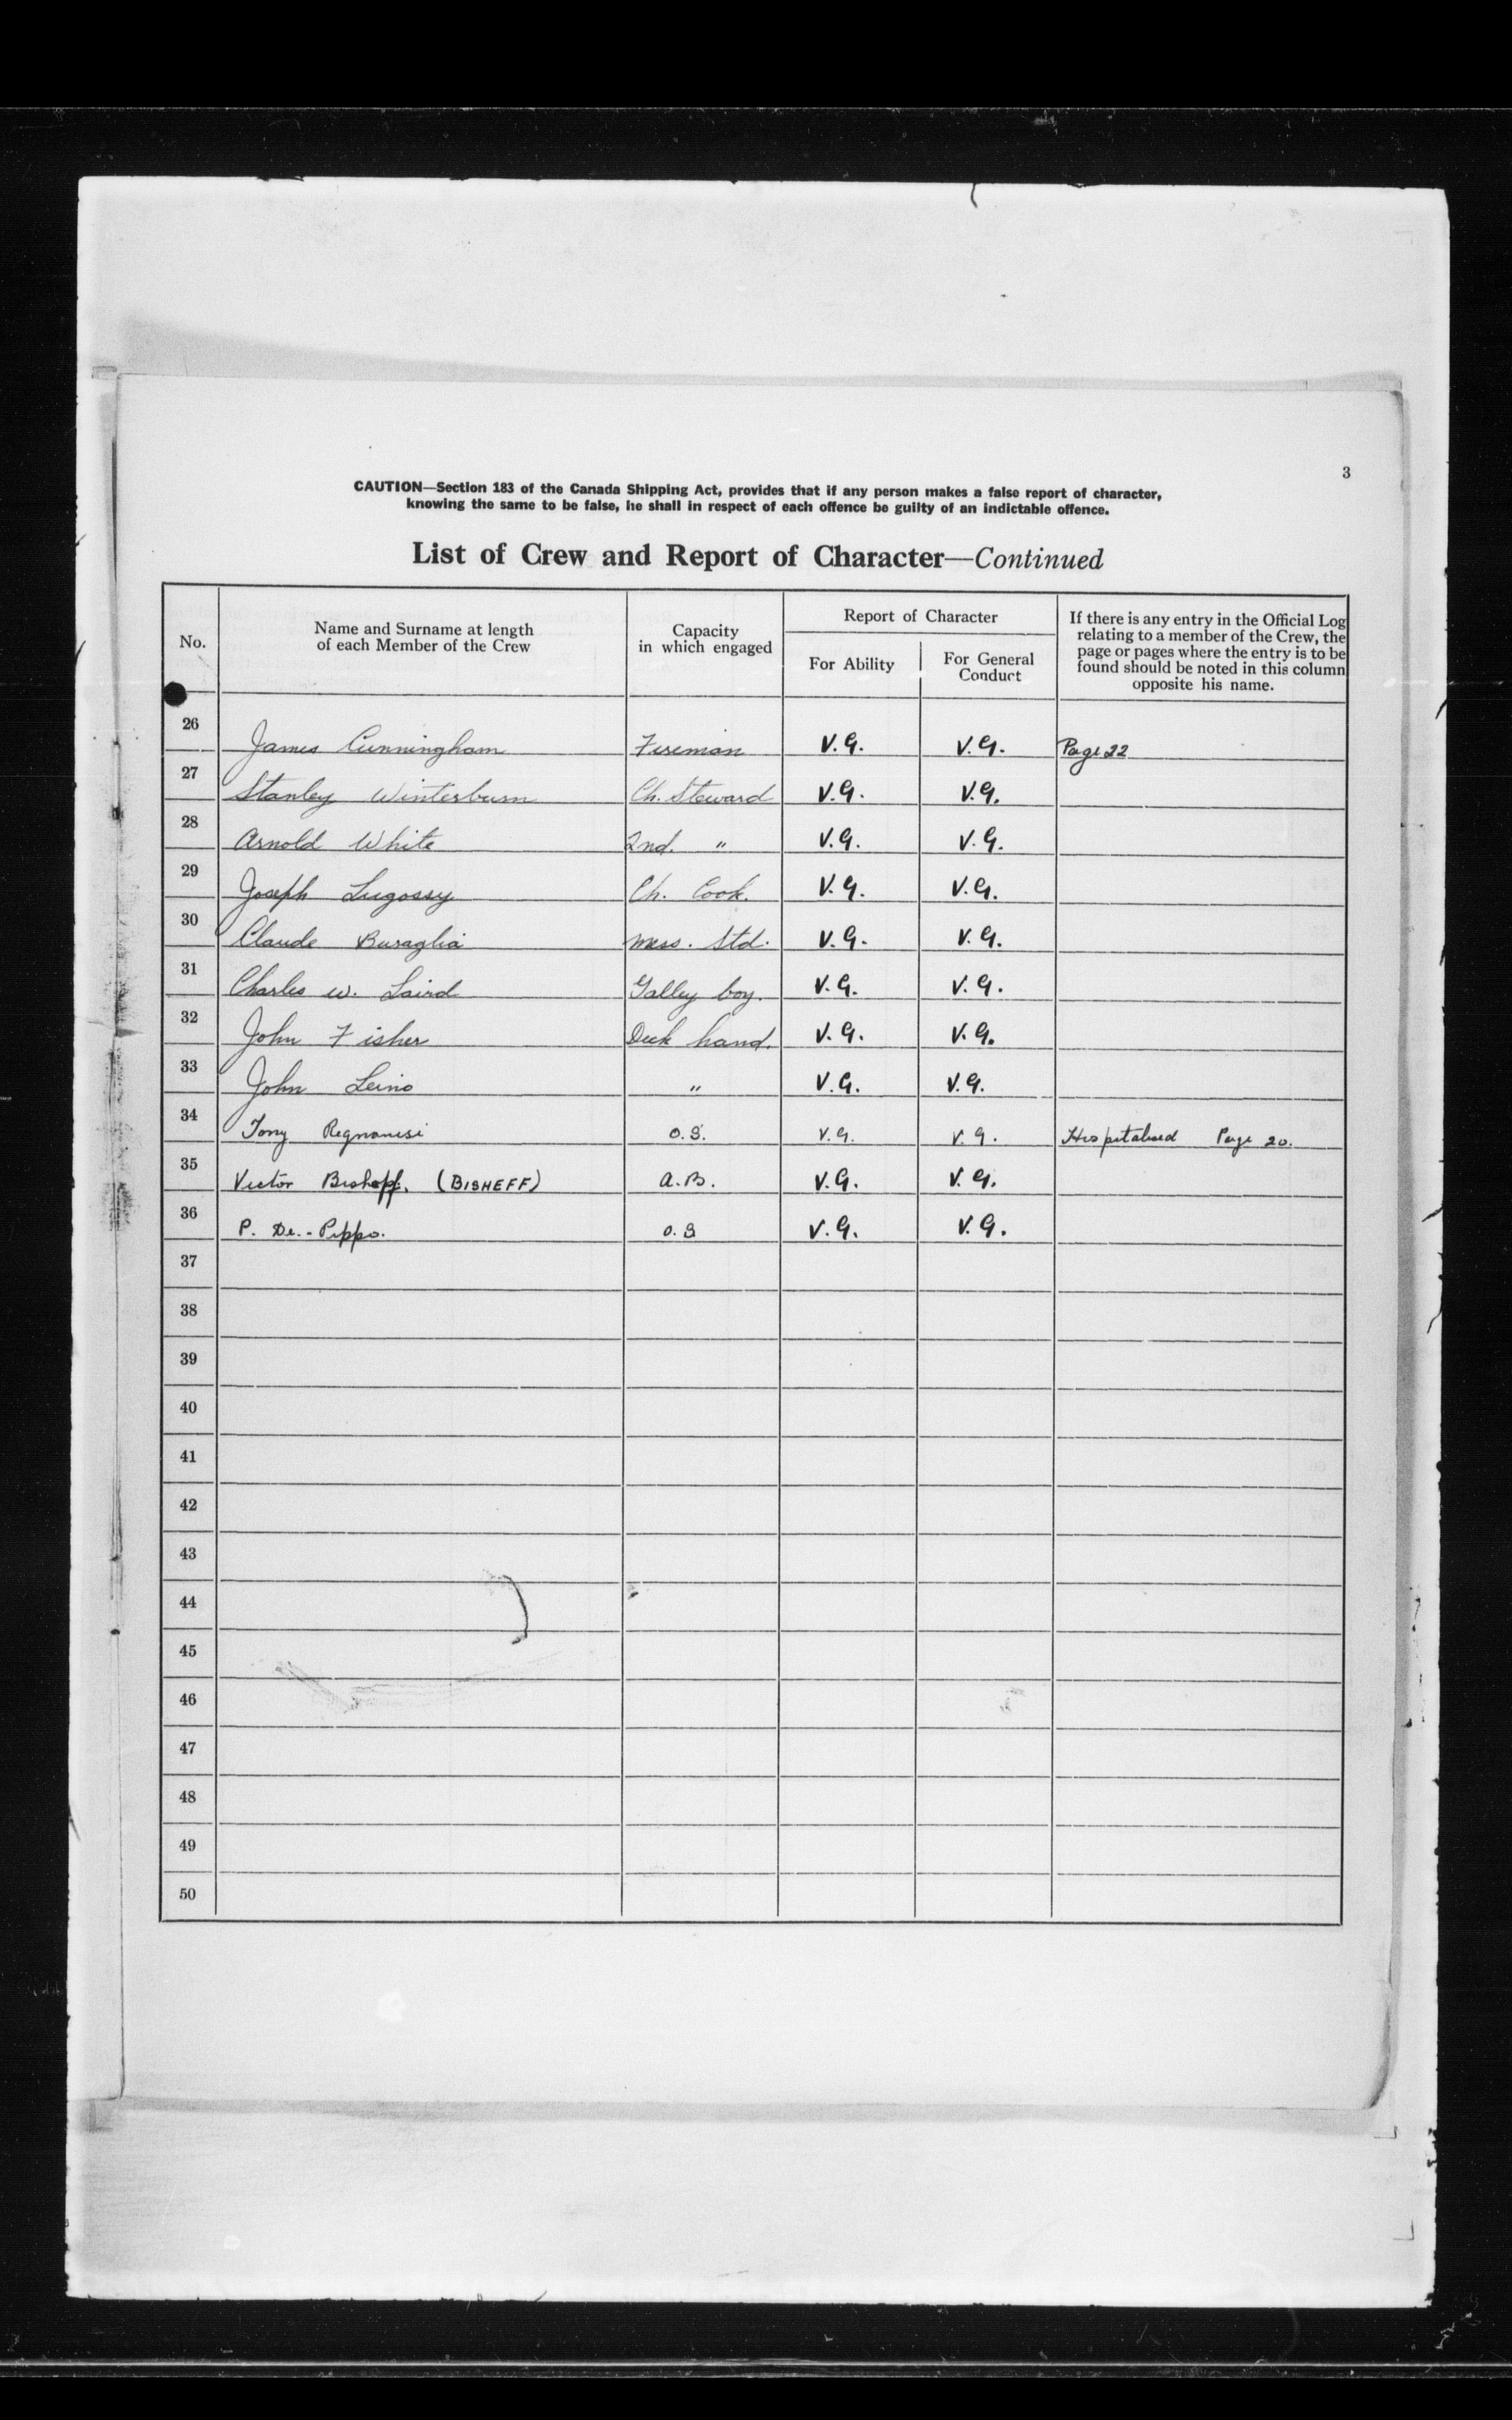 3
CAUTION—Section 183 of the Canada Shipping Act, provides that if any person makes a false report of character,
knowing the same to be false, he shall in respect of each offence be guilty of an indictable offence.
List of Crew and Report of Character—Continued
No.
Name and Surname at length
of each Member of the Crew
Capacity
in which engaged
Report of Character
For Ability
For General
Conduct
If there is any entry in the Official Log
relating to a member of the Crew, the
page or pages where the entry is to be
found should be noted in this column
opposite his name.
26 James Cunningham Fireman V.G. V.G. Page 22
27 Stanley Winterburn Ch. Steward V.G. V.G.
28 Arnold White 2nd. " V.G. V.G.
29 Joseph Lugossy Ch. Cook. V.G. V.G.
30 Claude Buraglia Mess. Std. V.G. V.G.
31 Charles W. Laird Galley boy. V.G. V.G.
32 John Fisher Deck hand. V.G. V.G.
33 John Leino " V.G. V.G.
34 Tony O.S. V.G. V.G. Hospitalised Page 20.
35 Victor Bishoff. (BISHEFF) A.B. V.G. V.G.
36 P. De.-Pippo. O.S V.G. V.G.
37
38
39
40
41
42
43
44
45
46
47
48
49
50